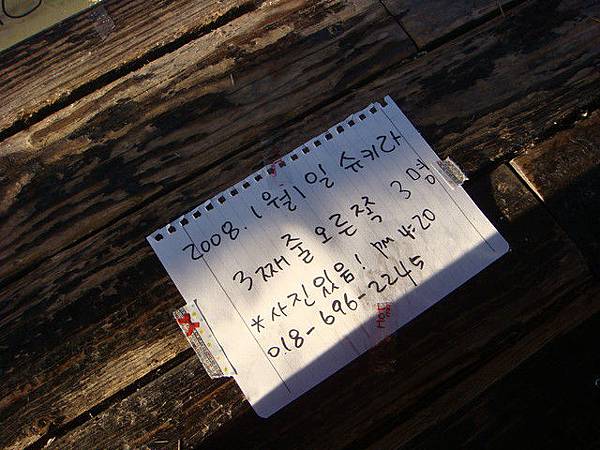 2008. 1월 1일 슈키라
3째줄 오른쪽 3명
*사진있음! pm 4:20
018-696-2245